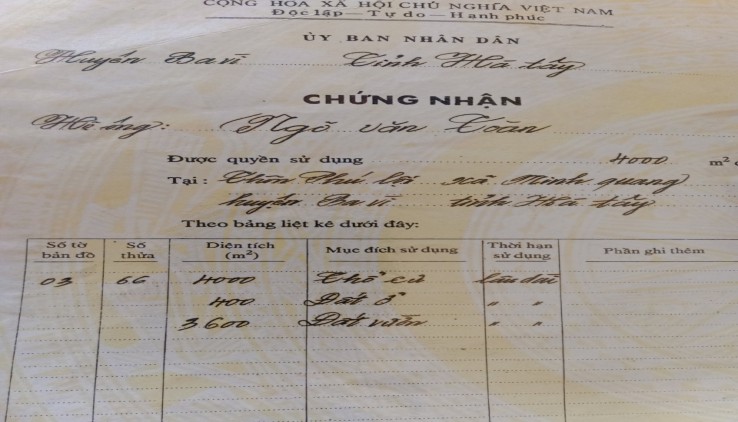 CỘNG HÒA XÃ HỘI CHỦ NGHĨA VIỆT NAM
Độc lập — Tự do — Hạnh phúc
ỦY BAN NHÂN DÂN
Huyện Ba vì Tỉnh Hà tây
CHỨNG NHẬN
Hộ ông: Ngô văn Toàn
Được quyền sử dụng 4000 m²
Tại: Thôn Phú lợi xã Minh quang
huyện Ba vì tỉnh Hà tây
Theo bảng liệt kê dưới đây:
Số tờ bản đồ Số thửa Diện tích (m²) Mục đích sử dụng Thời hạn sử dụng Phần ghi thêm
03 66 4000 Thổ cư lâu dài
400 Đất ở " "
3600 Đất vườn " "